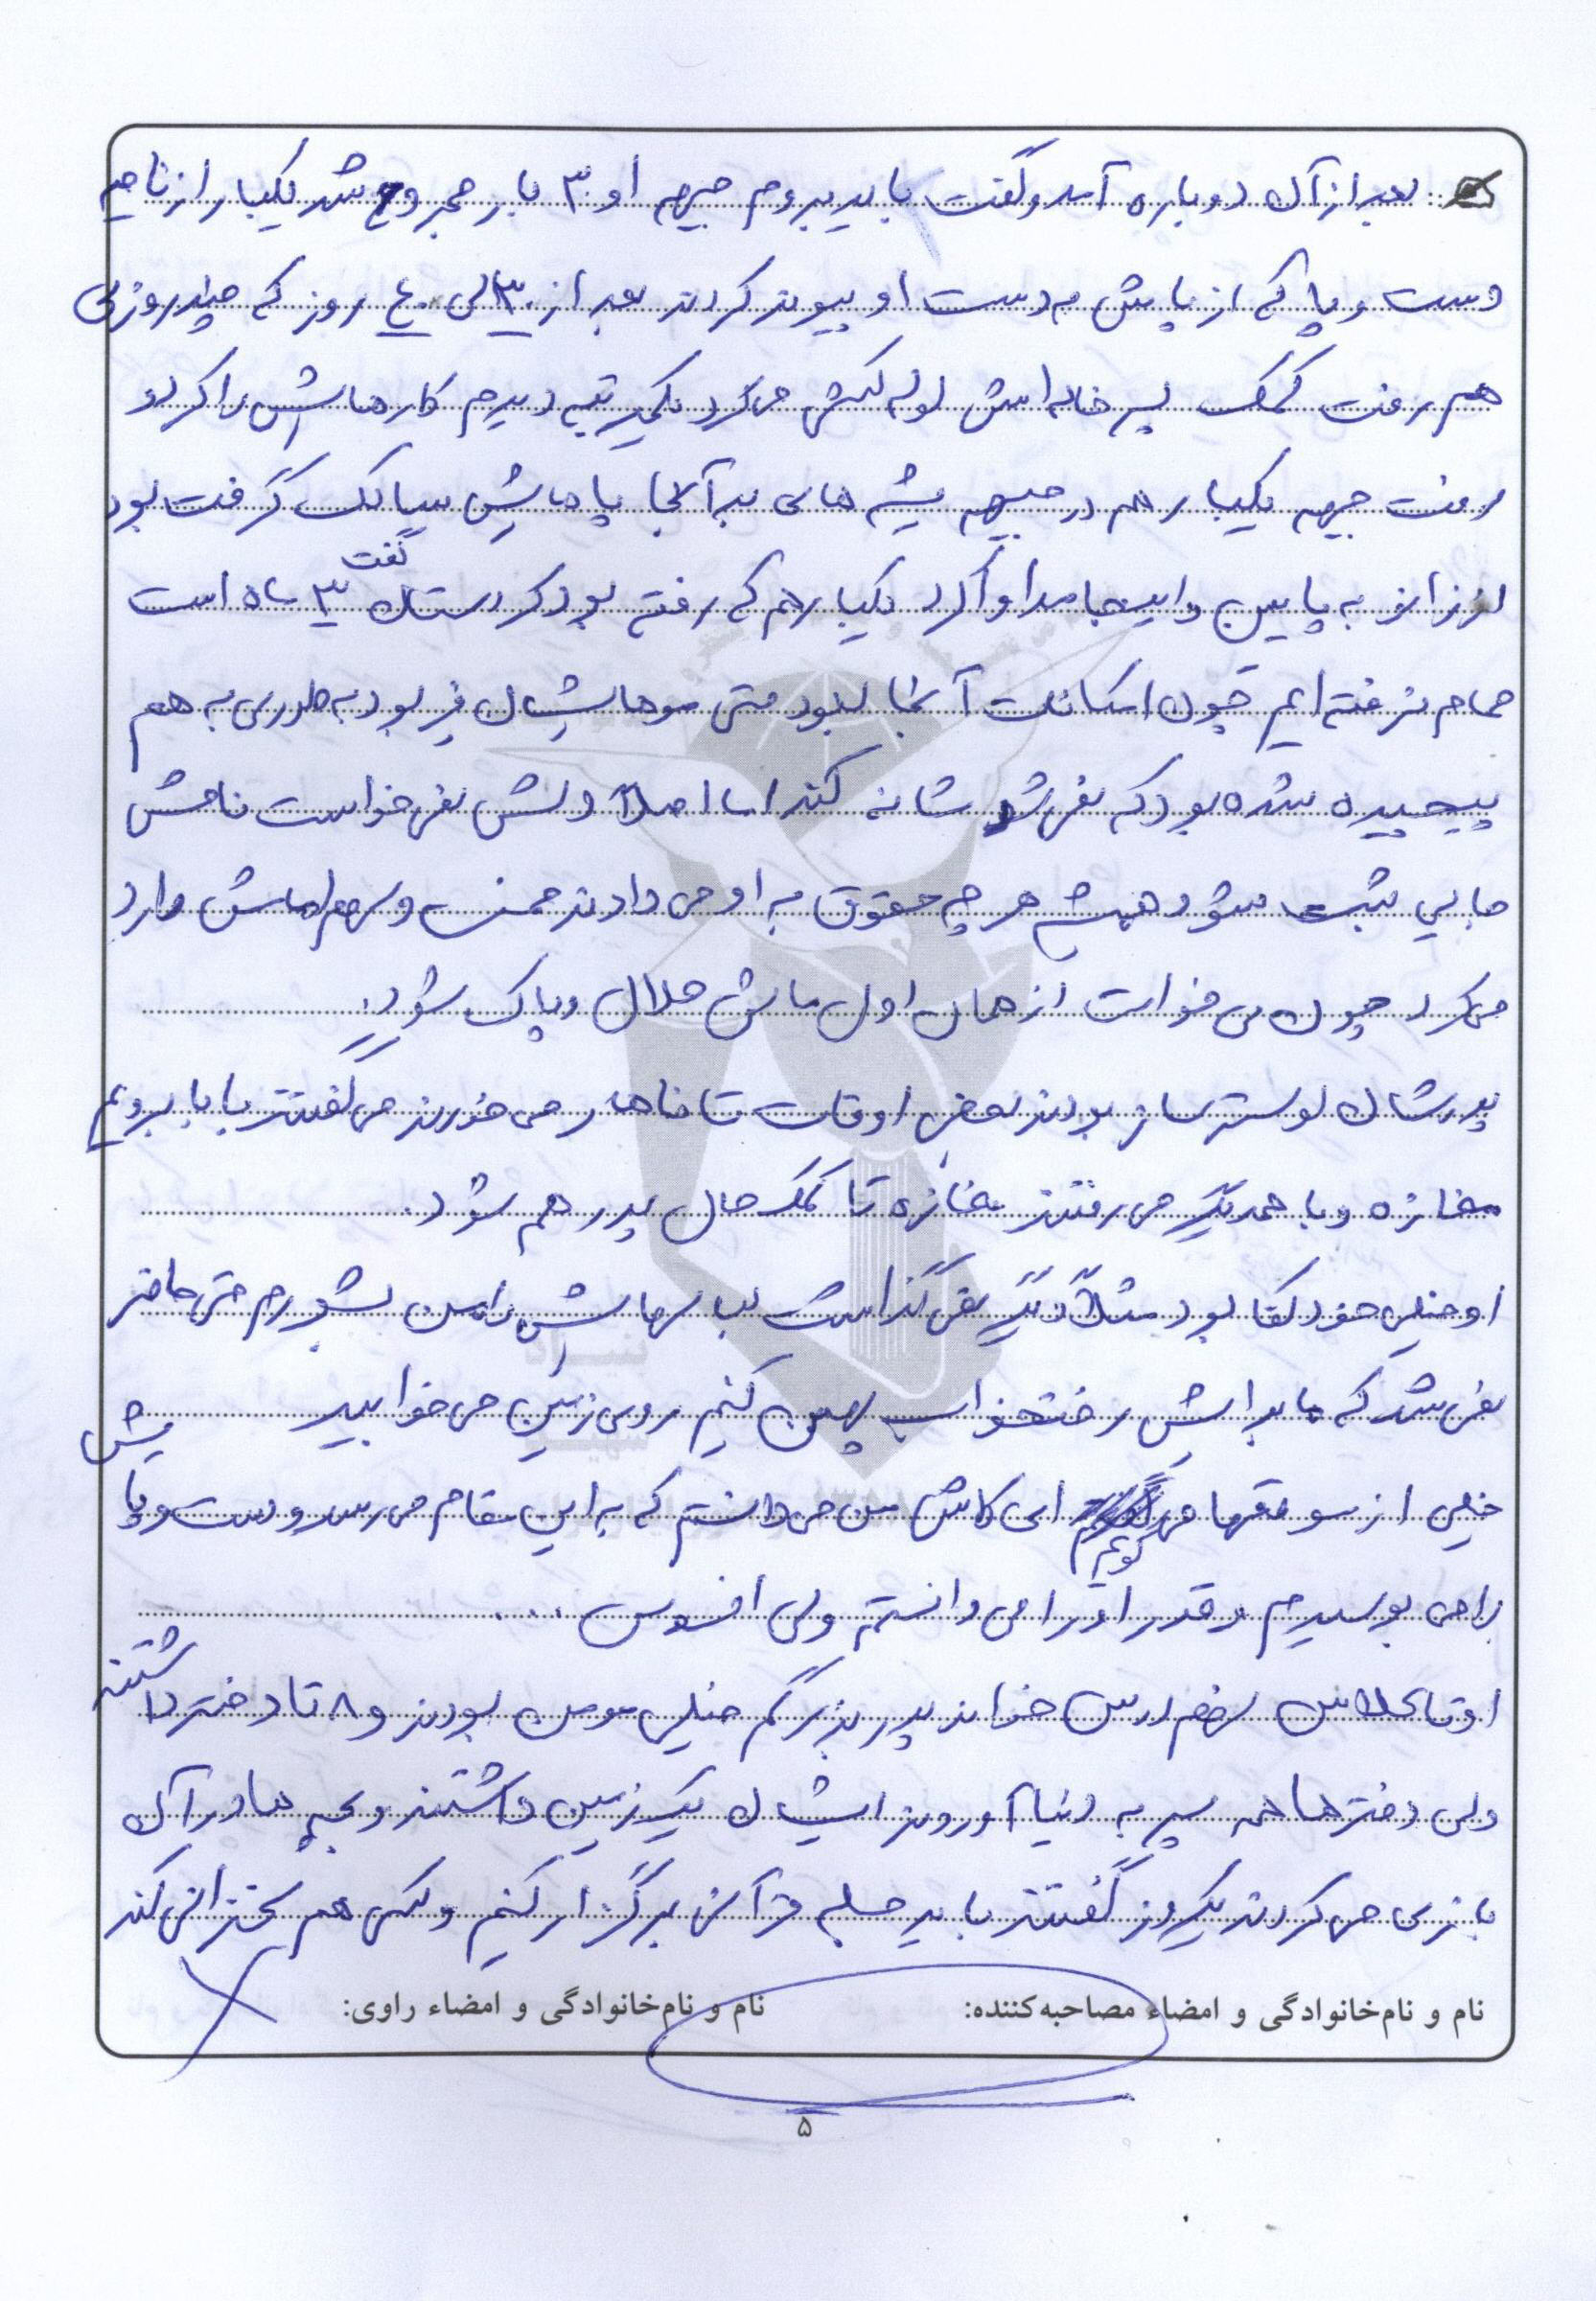 بعد از آن دوباره آمد و گفت باید بروم جبهه او ۳ بار مجروح شد یکبار از ناحیه
دست و پا که از پایش به دست او پیوند کردند بعد از ۳۰ الی ۴۰ روز که چند روزی
هم رفت کمک پسر خاله‌اش لوله کشی می‌کرد یکمرتبه دیدم کارهایش را کرد و
رفت جبهه یکبار هم در جبهه پشه های بد آنجا پاهایش سیاکک گرفت بود
از زانو به پایین و اینجا مداوا کرد یکبار هم که رفته بود کردستان گفت ۳ ماه است
حمام نرفته ایم چون امکانات آنجا نبود حتی موهایشان فر بود به طوری به هم
پیچیده شده بود که نمی‌شد شانه کند اما اصلاً دلش نمی خواست نامش
جایی ثبت شود همیشه هر چه حقوق به او می دادند خمس و سهم امامش را رد
می‌کرد چون می خواست از همان اول مالش حلال و پاک شود.
پدرشان لوستر ساز بودند بعضی اوقات تا ناهار می خوردند می گفتند بابا برویم
مغازه و با همدیگر می رفتند مغازه تا کمک حال پدر هم شود.
او خیلی خودکفا بود مثلاً دیگر نمی گذاشت لباسهایش را من بشورم حتی حاضر
نمی شد که ما برایش رختخواب پهن کنیم روی زمین می خوابید پیش
خیلی از موقعها می گویم ای کاش من می دانستم که به این مقام می رسد و دست و پا
را می بوسیدم و قدر او را می دانستم ولی افسوس ...
او تا کلاس نهم درس خواند پدر بزرگم خیلی مومن بودند و ۸ تا دختر داشتند
ولی دخترها همه پسر به دنیا آوردند ایشان یک زمین داشتند و بچه ها در آن
بازی می کردند یکروز گفتند باید جلسه قرآن برگزار کنیم و یکی هم سخنرانی کند
نام و نام‌خانوادگی و امضاء مصاحبه‌کننده: نام و نام‌خانوادگی و امضاء راوی:
۵